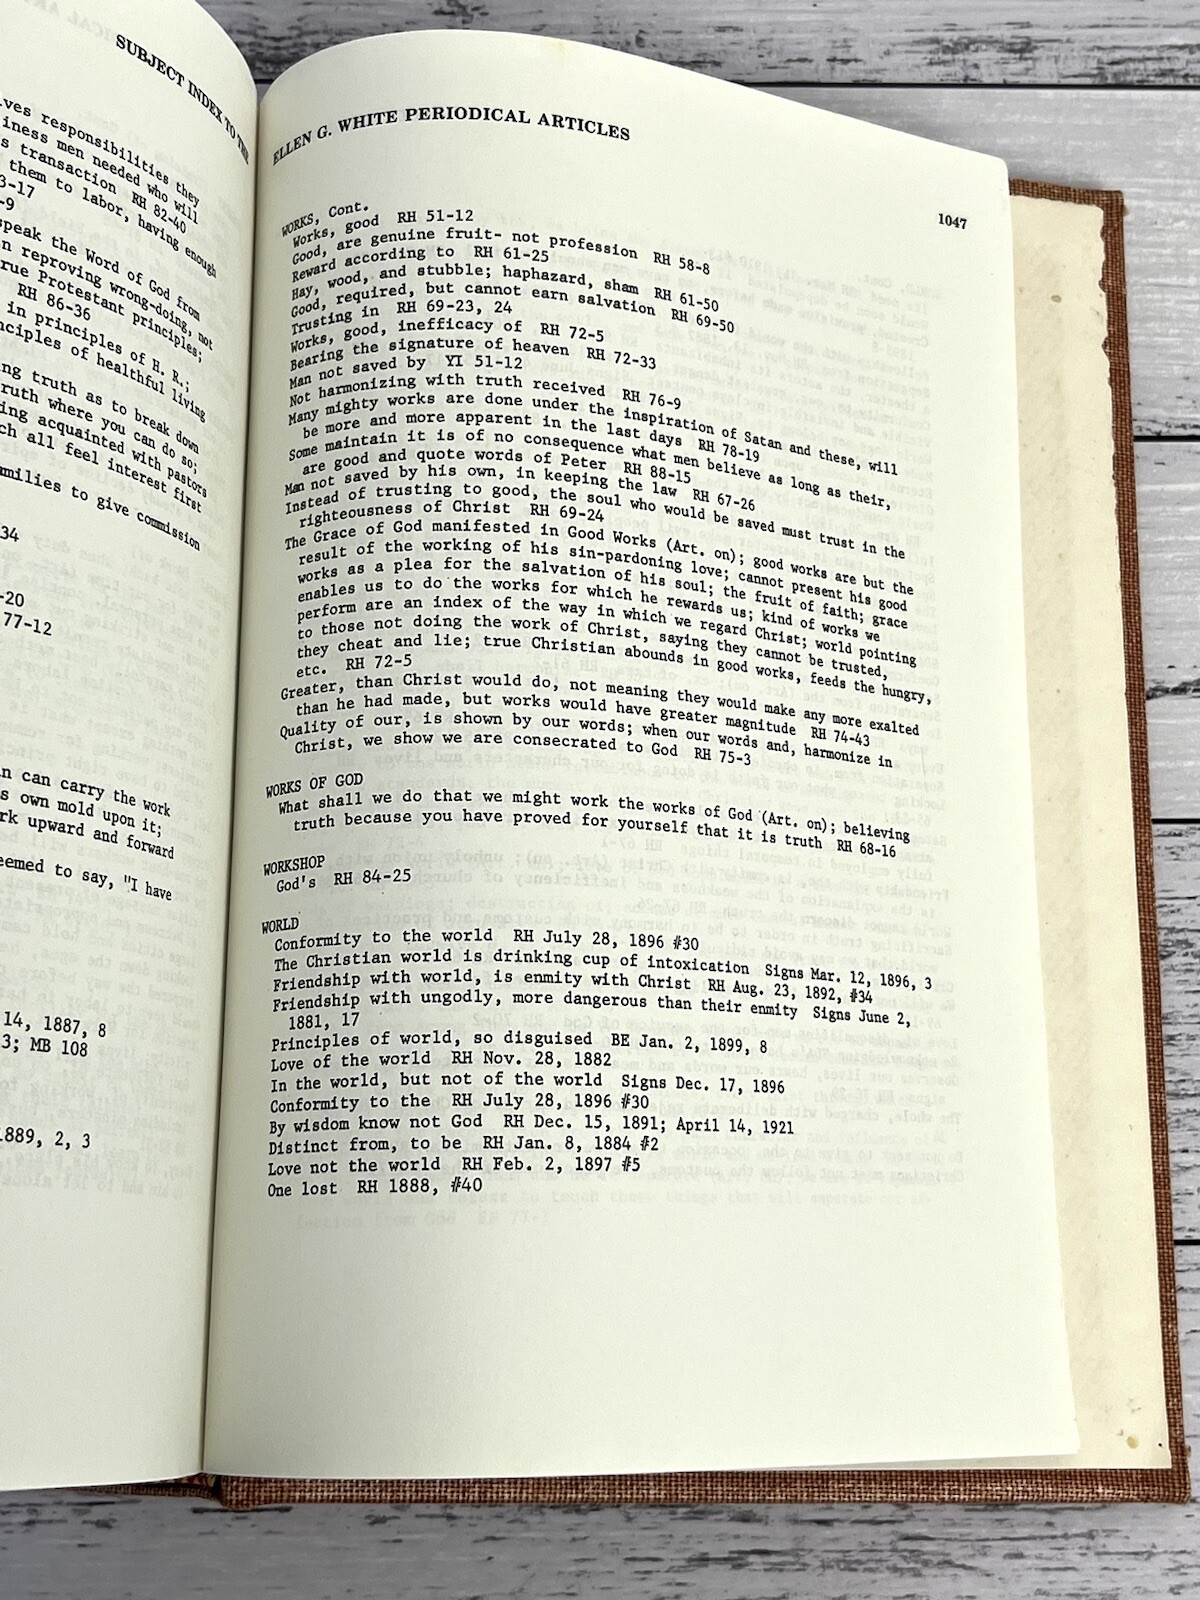 SUBJECT INDEX TO THE
ves responsibilities they
iness men needed who will
s transaction RH 82-40
them to labor, having enough
3-17
-9
speak the Word of God from
n reproving wrong-doing, not
rue Protestant principles;
RH 86-36
in principles of H. R.;
nciples of healthful living
ng truth as to break down
ruth where you can do so;
ing acquainted with pastors
ch all feel interest first
milies to give commission
34
-20
77-12
n can carry the work
s own mold upon it;
rk upward and forward
eemed to say, "I have
14, 1887, 8
3; MB 108
1889, 2, 3
ELLEN G. WHITE PERIODICAL ARTICLES
1047
WORKS, Cont.
Works, good RH 51-12
Good, are genuine fruit- not profession RH 58-8
Reward according to RH 61-25
Hay, wood, and stubble; haphazard, sham RH 61-50
Good, required, but cannot earn salvation RH 69-50
Trusting in RH 69-23, 24
Works, good, inefficacy of RH 72-5
Bearing the signature of heaven RH 72-33
Man not saved by YI 51-12
Not harmonizing with truth received RH 76-9
Many mighty works are done under the inspiration of Satan and these, will
be more and more apparent in the last days RH 78-19
Some maintain it is of no consequence what men believe as long as their,
are good and quote words of Peter RH 88-15
Man not saved by his own, in keeping the law RH 67-26
Instead of trusting to good, the soul who would be saved must trust in the
righteousness of Christ RH 69-24
The Grace of God manifested in Good Works (Art. on); good works are but the
result of the working of his sin-pardoning love; cannot present his good
works as a plea for the salvation of his soul; the fruit of faith; grace
enables us to do the works for which he rewards us; kind of works we
perform are an index of the way in which we regard Christ; world pointing
to those not doing the work of Christ, saying they cannot be trusted,
they cheat and lie; true Christian abounds in good works, feeds the hungry,
etc. RH 72-5
Greater, than Christ would do, not meaning they would make any more exalted
than he had made, but works would have greater magnitude RH 74-43
Quality of our, is shown by our words; when our words and, harmonize in
Christ, we show we are consecrated to God RH 75-3
WORKS OF GOD
What shall we do that we might work the works of God (Art. on); believing
truth because you have proved for yourself that it is truth RH 68-16
WORKSHOP
God's RH 84-25
WORLD
Conformity to the world RH July 28, 1896 #30
The Christian world is drinking cup of intoxication Signs Mar. 12, 1896, 3
Friendship with world, is enmity with Christ RH Aug. 23, 1892, #34
Friendship with ungodly, more dangerous than their enmity Signs June 2,
1881, 17
Principles of world, so disguised BE Jan. 2, 1899, 8
Love of the world RH Nov. 28, 1882
In the world, but not of the world Signs Dec. 17, 1896
Conformity to the RH July 28, 1896 #30
By wisdom know not God RH Dec. 15, 1891; April 14, 1921
Distinct from, to be RH Jan. 8, 1884 #2
Love not the world RH Feb. 2, 1897 #5
One lost RH 1888, #40